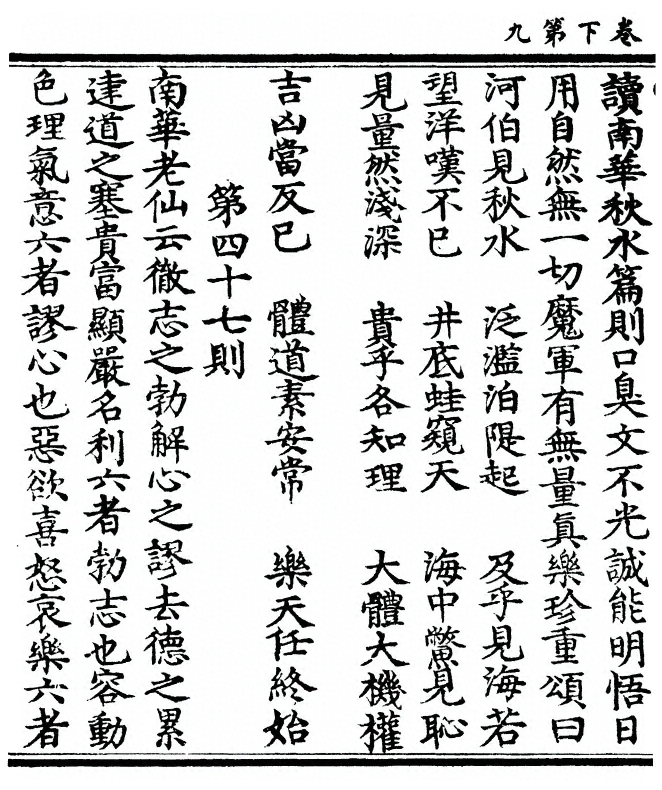 卷下第九
讀南華秋水篇則口臭文不光誠能明悟日
用自然無一切魔軍有無量眞樂珍重頌曰
河伯見秋水 泛濫泊隄起 及乎見海若
望洋嘆不已 井底蛙窺天 海中鱉見恥
見量然淺深 貴乎各知理 大體大機權
吉凶當反已 體道素安常 樂天任終始
第四十七則
南華老仙云徹志之勃解心之謬去德之累
達道之塞貴富顯嚴名利六者勃志也容動
色理氣意六者謬心也惡欲喜怒哀樂六者